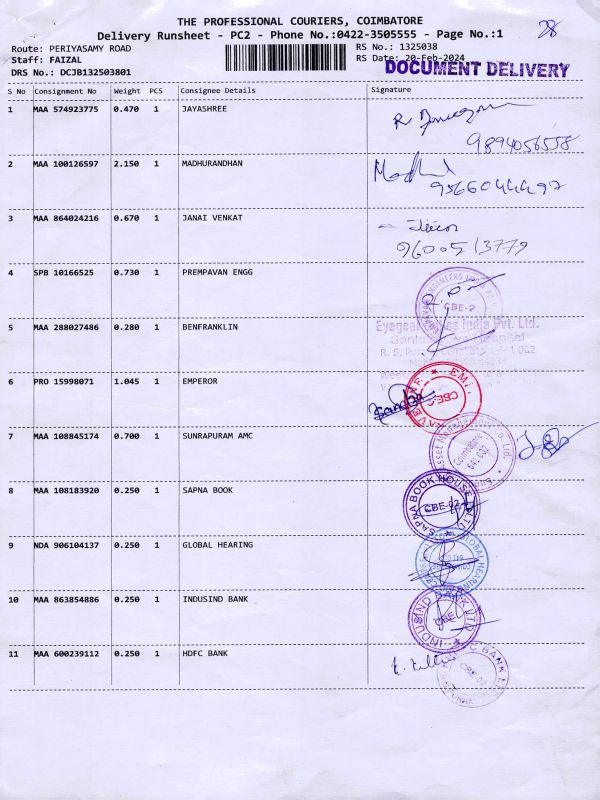 THE PROFESSIONAL COURIERS, COIMBATORE
28
Delivery Runsheet - PC2 - Phone No.:0422-3505555 - Page No.:1
Route: PERIYASAMY ROAD
RS No.: 1325038
Staff: FAIZAL
RS Date: 20-Feb-2024
DRS No.: DCJB132503801
DOCUMENT DELIVERY
S No Consignment No Weight PCS Consignee Details Signature
1 MAA 574923775 0.470 1 JAYASHREE
9894056558
2 MAA 100126597 2.150 1 MADHURANDHAN
9566044497
3 MAA 864024216 0.670 1 JANAI VENKAT
9600513779
4 SPB 10166525 0.730 1 PREMPAVAN ENGG
CBE-2
5 MAA 288027486 0.280 1 BENFRANKLIN
India Pvt. Ltd.
6 PRO 15998071 1.045 1 EMPEROR
CBE-2
7 MAA 108845174 0.700 1 SUNRAPURAM AMC
Coimbatore
641 002
8 MAA 108183920 0.250 1 SAPNA BOOK
SAPNA BOOK HOUSE
CBE-02
9 NDA 906104137 0.250 1 GLOBAL HEARING
GLOBAL HEARING
10 MAA 863854886 0.250 1 INDUSIND BANK
INDUSIND BANK LTD
CBE
11 MAA 600239112 0.250 1 HDFC BANK
BANK
CBE-02